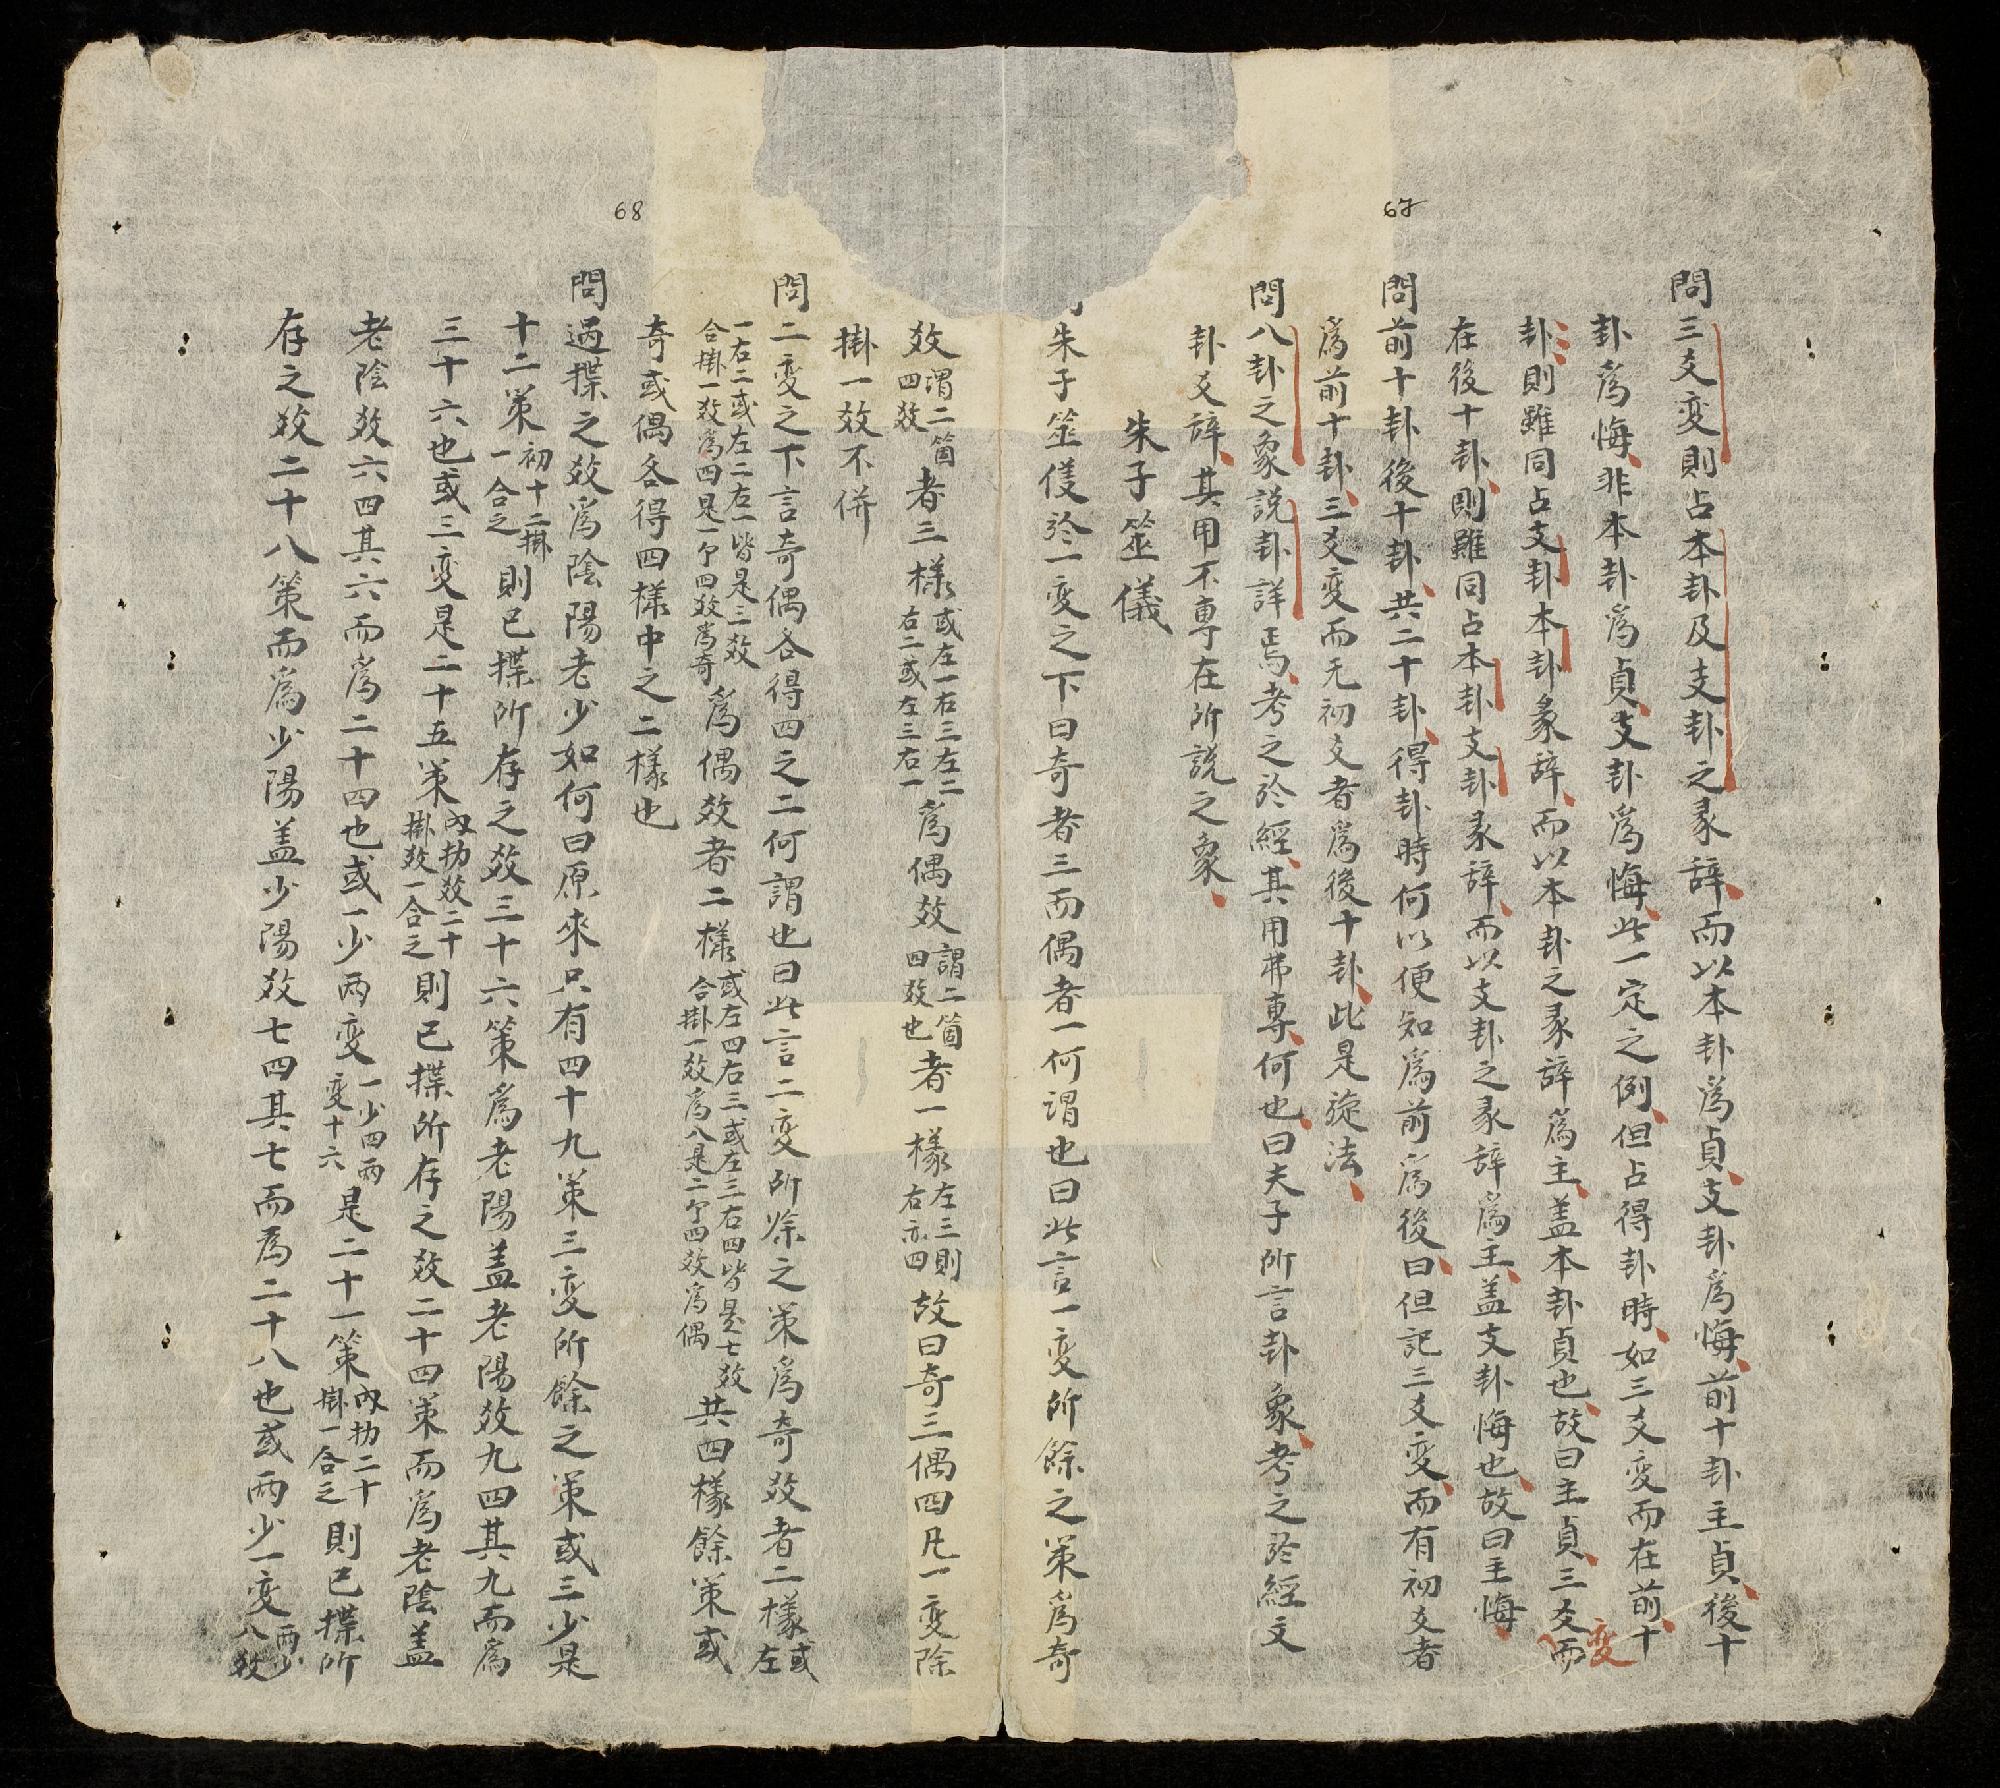 67
問三爻変則占本卦及支卦之彖辞而以本卦爲貞支卦爲悔前十卦主貞後十
卦爲悔非本卦爲貞支卦爲悔此一定之例但占得卦時如三爻変而在前十
卦則雖同占支卦本卦彖辞而以本卦之彖辞爲主盖本卦貞也故曰主貞三爻而
変
在後十卦則雖同占本卦支卦彖辞而以支卦之彖辞爲主盖支卦悔也故曰主悔
問前十卦後十卦共二十卦得卦時何以便知爲前爲後曰但記三爻変而有初爻者
爲前十卦三爻変而无初文者爲後十卦此是旋法
問八卦之象説卦詳焉考之於經其用弗專何也曰夫子所言卦象考之於經文
卦爻辞其用不専在所説之象
朱子筮儀
朱子筮儀於一変之下曰奇者三而偶者一何謂也曰此言一変所餘之策爲奇
效謂二箇四效者三樣或左一右三左二右二或左三右一爲偶效謂二箇四效也者一樣左三則右亦四故曰奇三偶四凡一変除
掛一效不併
68
問二変之下言奇偶各得四之二何謂也曰此言二変所馀之策爲奇效者二樣或左
一右二或左二右一皆是三效合掛一效爲四是一个四效爲奇爲偶效者二樣或左四右三或左三右四皆是七效合掛一效爲八是二个四效爲偶共四樣餘策或
奇或偶各得四樣中之二樣也
問過揲之效爲陰陽老少如何曰原來只有四十九策三変所餘之策或三少是
十二策初十二掛一合之則已揲所存之效三十六策爲老陽盖老陽效九四其九而爲
三十六也或三変是二十五策內扐效二十掛效一合之則已揲所存之效二十四策而爲老陰盖
老陰效六四其六而爲二十四也或一少兩変一少四兩変十六是二十一策內扐二十掛一合之則已揲所
存之效二十八策而爲少陽盖少陽效七四其七而爲二十八也或兩少一変兩少八效